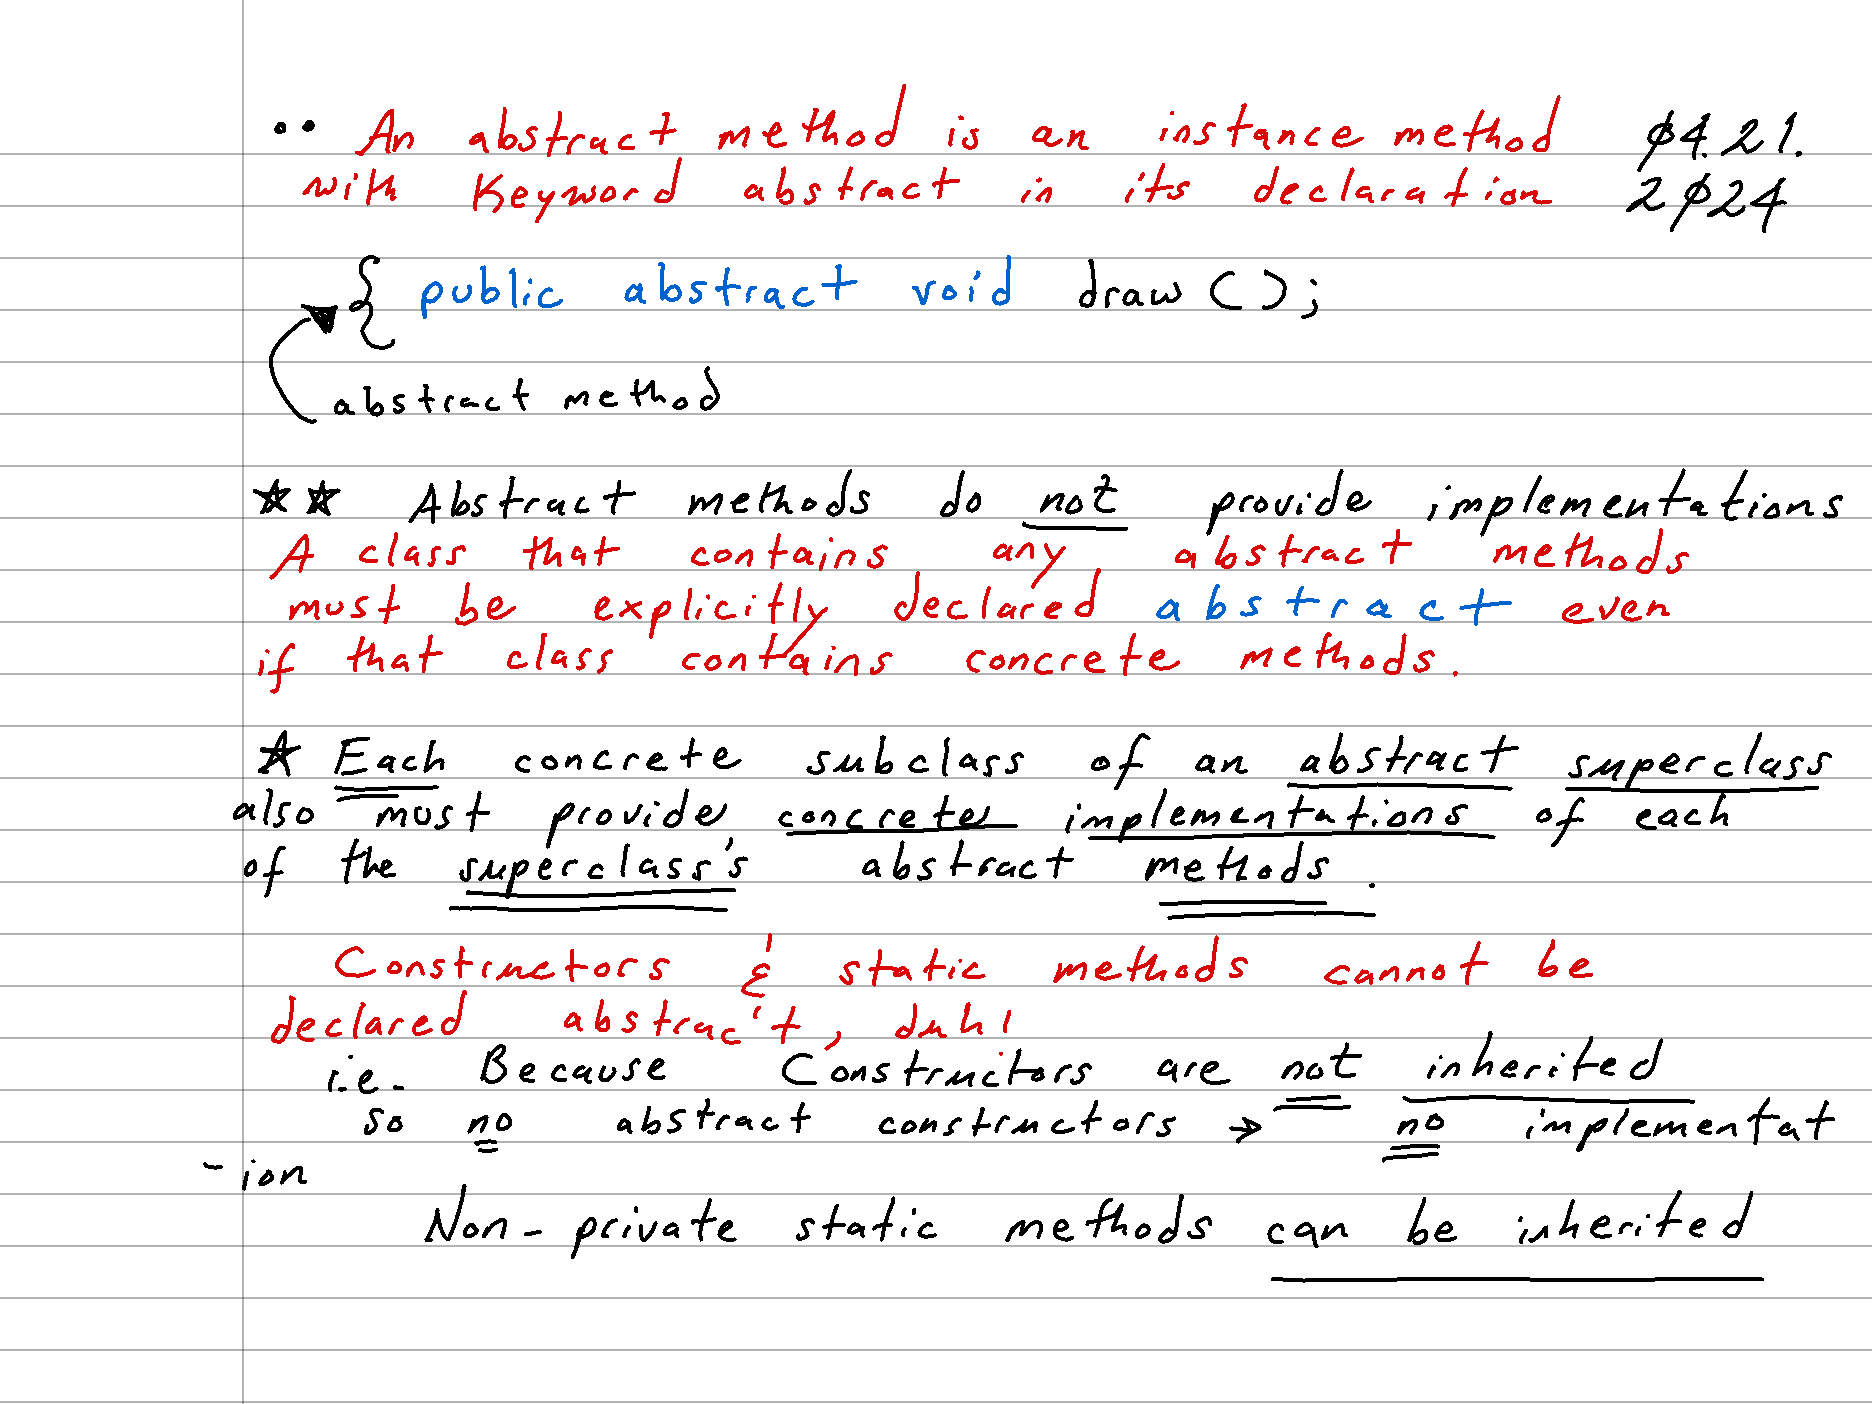 •• An abstract method is an instance method ø4.21.
with Keyword abstract in its declaration 2ø24
{ public abstract void draw ( );
abstract method
★★ Abstract methods do not provide implementations
A class that contains any abstract methods
must be explicitly declared abstract even
if that class contains concrete methods.
★ Each concrete subclass of an abstract superclass
also must provide concrete implementations of each
of the superclass's abstract methods.
Constructors & static methods cannot be
declared abstrac't, duh!
i.e. Because Constructors are not inherited
so no abstract constructors → no implementat
-ion
Non-private static methods can be inherited